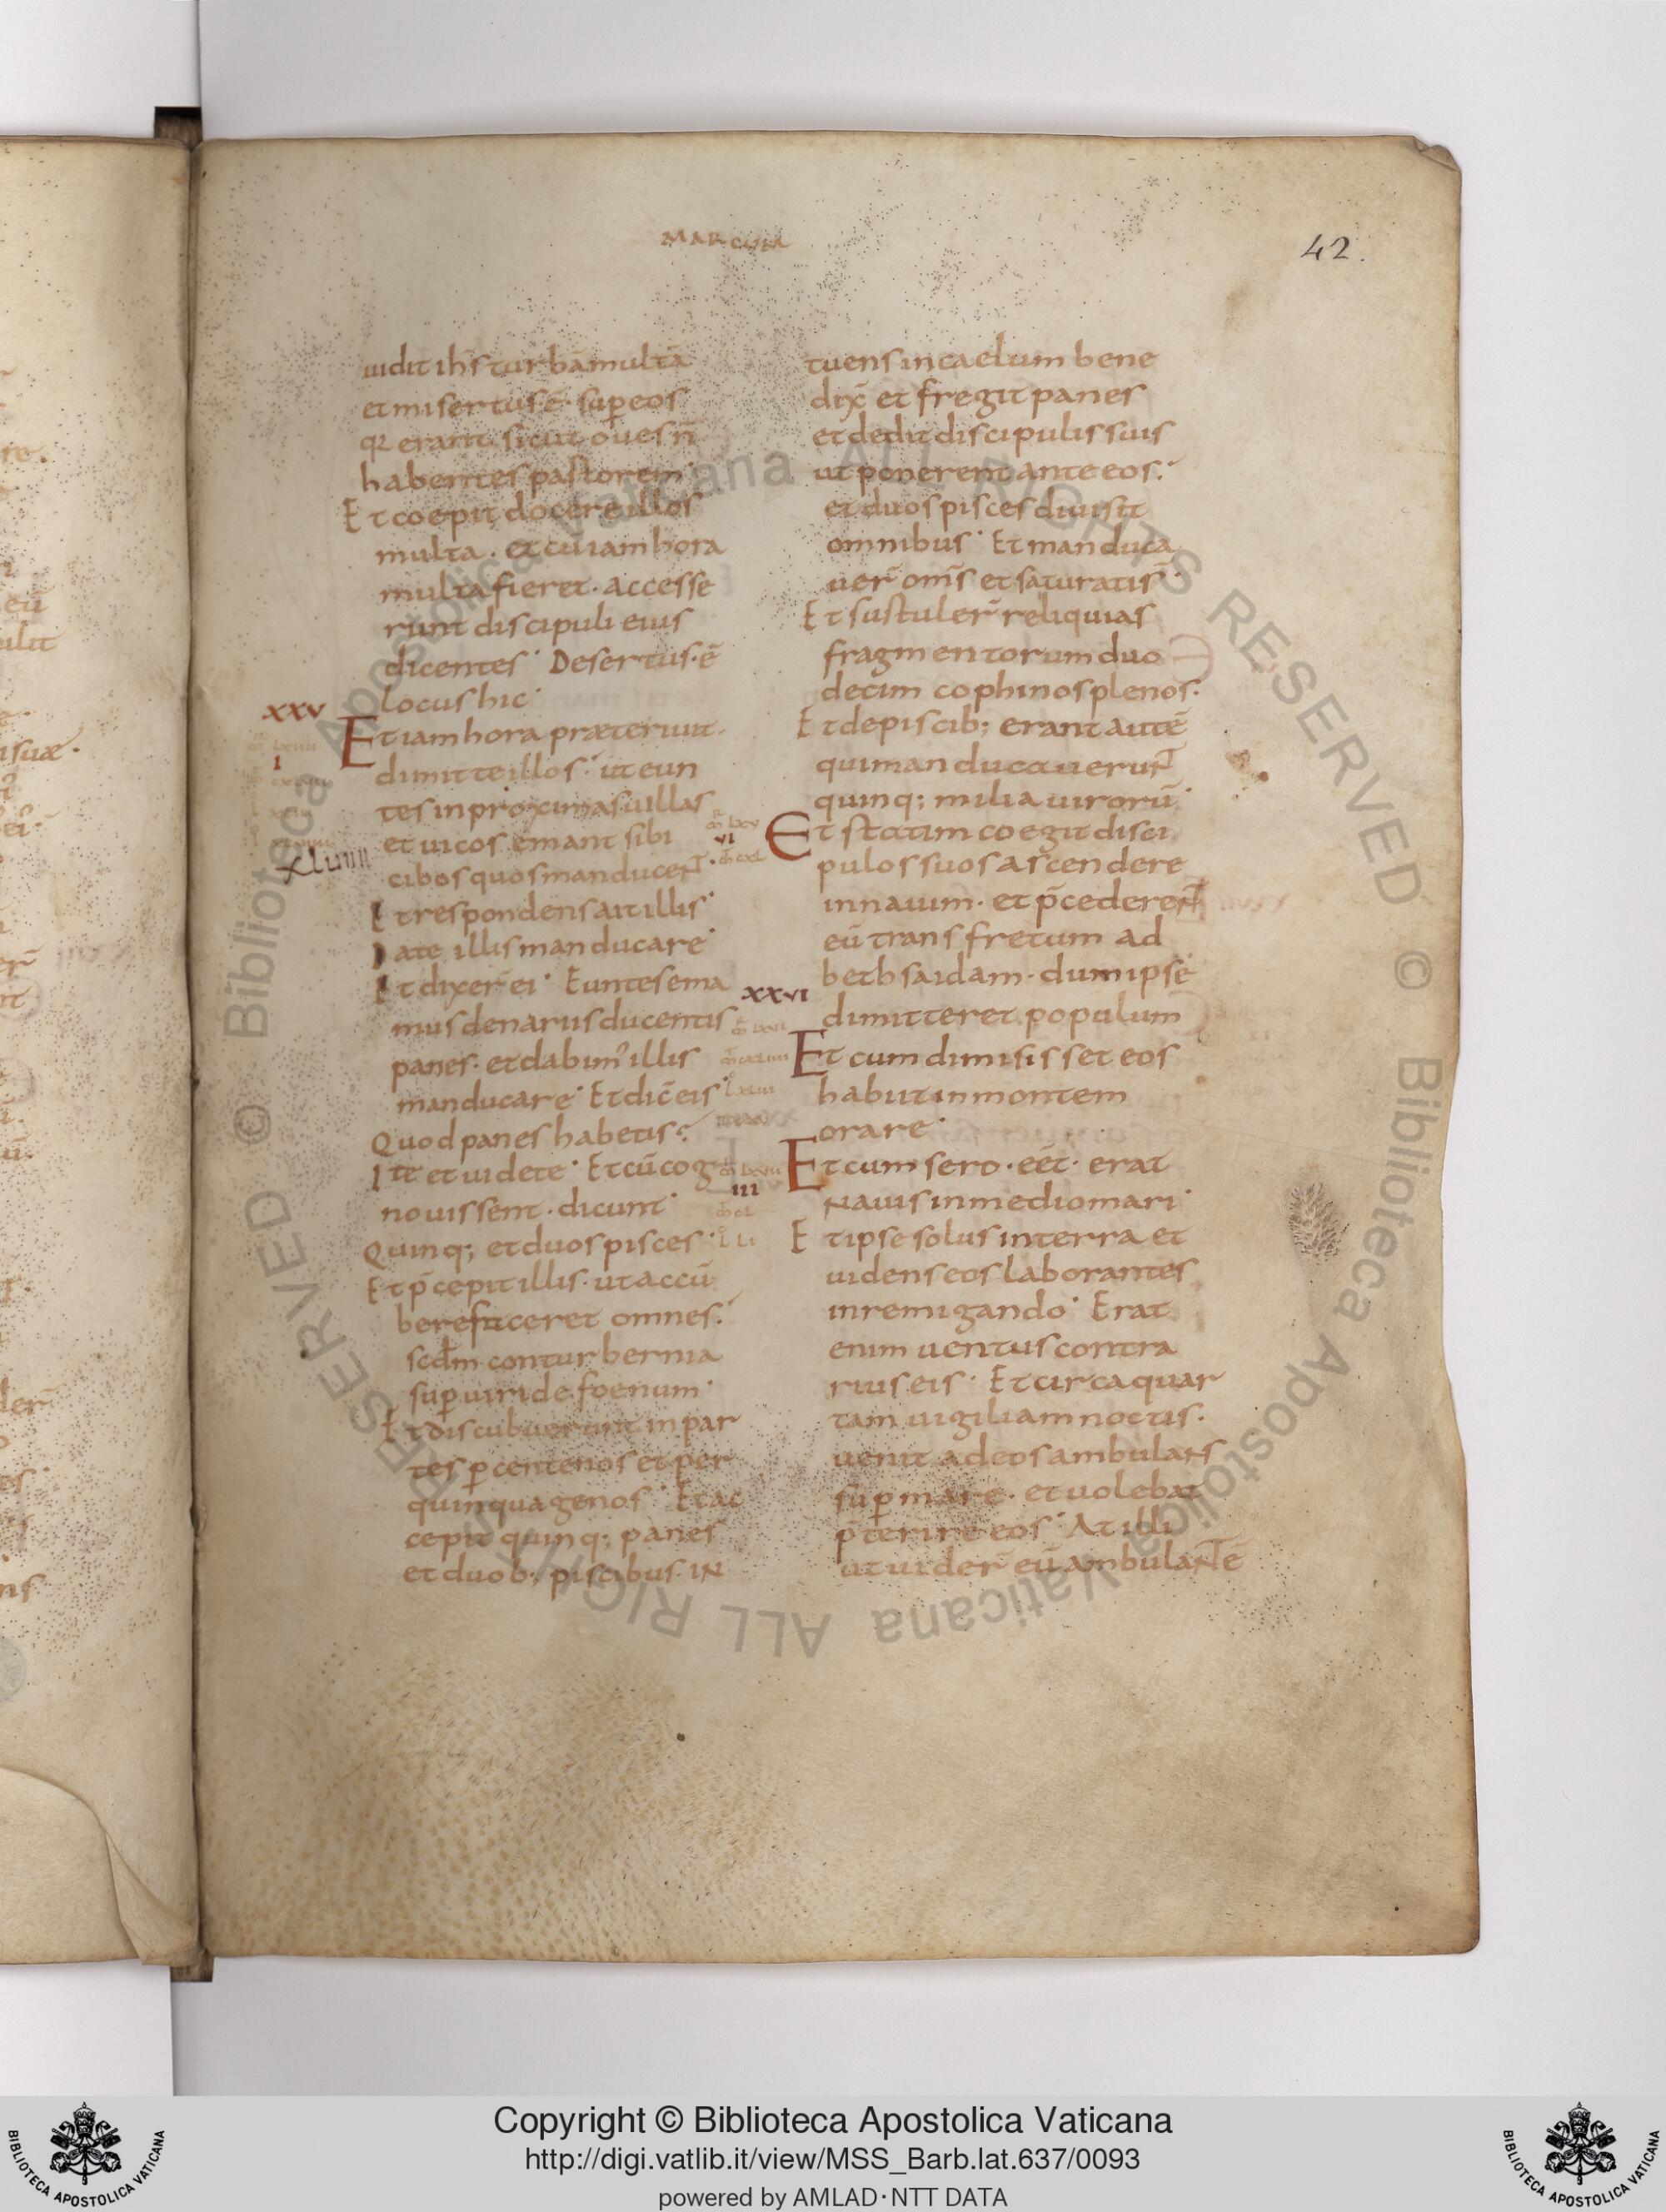 MARCUM
42.
uidit ihs turbā multā
et misertus ē sup eos
q̄ erant sicut oues n̄
habentes pastorem·
Et coepit docere illos
multa· et cū iam hora
multa fieret· accesse
runt discipuli eius
dicentes· Desertus·ē
locus hic·
xxv
Et iam hora præteriuit·
dimitte illos· ut eun
tes in proximas uillas
et uicos emant sibi
xLuiiii
cibos quos manducent·
Et respondens ait illis·
Date illis manducare·
Et dixer̄ ei· Euntes ema
mus denariis ducentis
panes· et dabim' illis
manducare· Et dic̄ eis·
Quod panes habetis?
Ite et uidete· Et cū cog
nouissent· dicunt·
Quinq; et duos pisces·
Et p̄cepit illis· ut accū
bere faceret omnes·
scdm conturbernia
sup uiride foenum·
Et discubuerunt in par
tes p centenos et per
quinquagenos· Et ac
cepit quinq; panes
et duob; piscibus· in
tuens in caelum bene
dix̄ et fregit panes
et dedit discipulis suis
ut ponerent ante eos·
et duos pisces diuisit
omnibus· Et manduca
uer̄ om̄s et saturati s̄·
Et sustuler̄ reliquias
fragmentorum duo
decim cophinos plenos·
Et de piscib; erant autē
qui manducauerunt
quinq; milia uirorū·
vi
Et statim coegit disci
pulos suos ascendere
in nauim· et p̄cederent
eū trans fretum ad
bethsaidam· dum ipse
xxvi
dimitteret populum
Et cum dimisisset eos
habiit in montem
orare·
Et cum sero· eēt· erat
III
nauis in medio mari·
Et ipse solus in terra et
uidens eos laborantes
in remigando· Erat
enim uentus contra
rius eis· Et circa quar
tam uigiliam noctis·
uenit ad eos ambulans
sup mare· et uolebat
p̄terire eos· At illi
ut uider̄ eū ambulantē
Copyright © Biblioteca Apostolica Vaticana
http://digi.vatlib.it/view/MSS_Barb.lat.637/0093
powered by AMLAD·NTT DATA
BIBLIOTECA APOSTOLICA VATICANA
BIBLIOTECA APOSTOLICA VATICANA